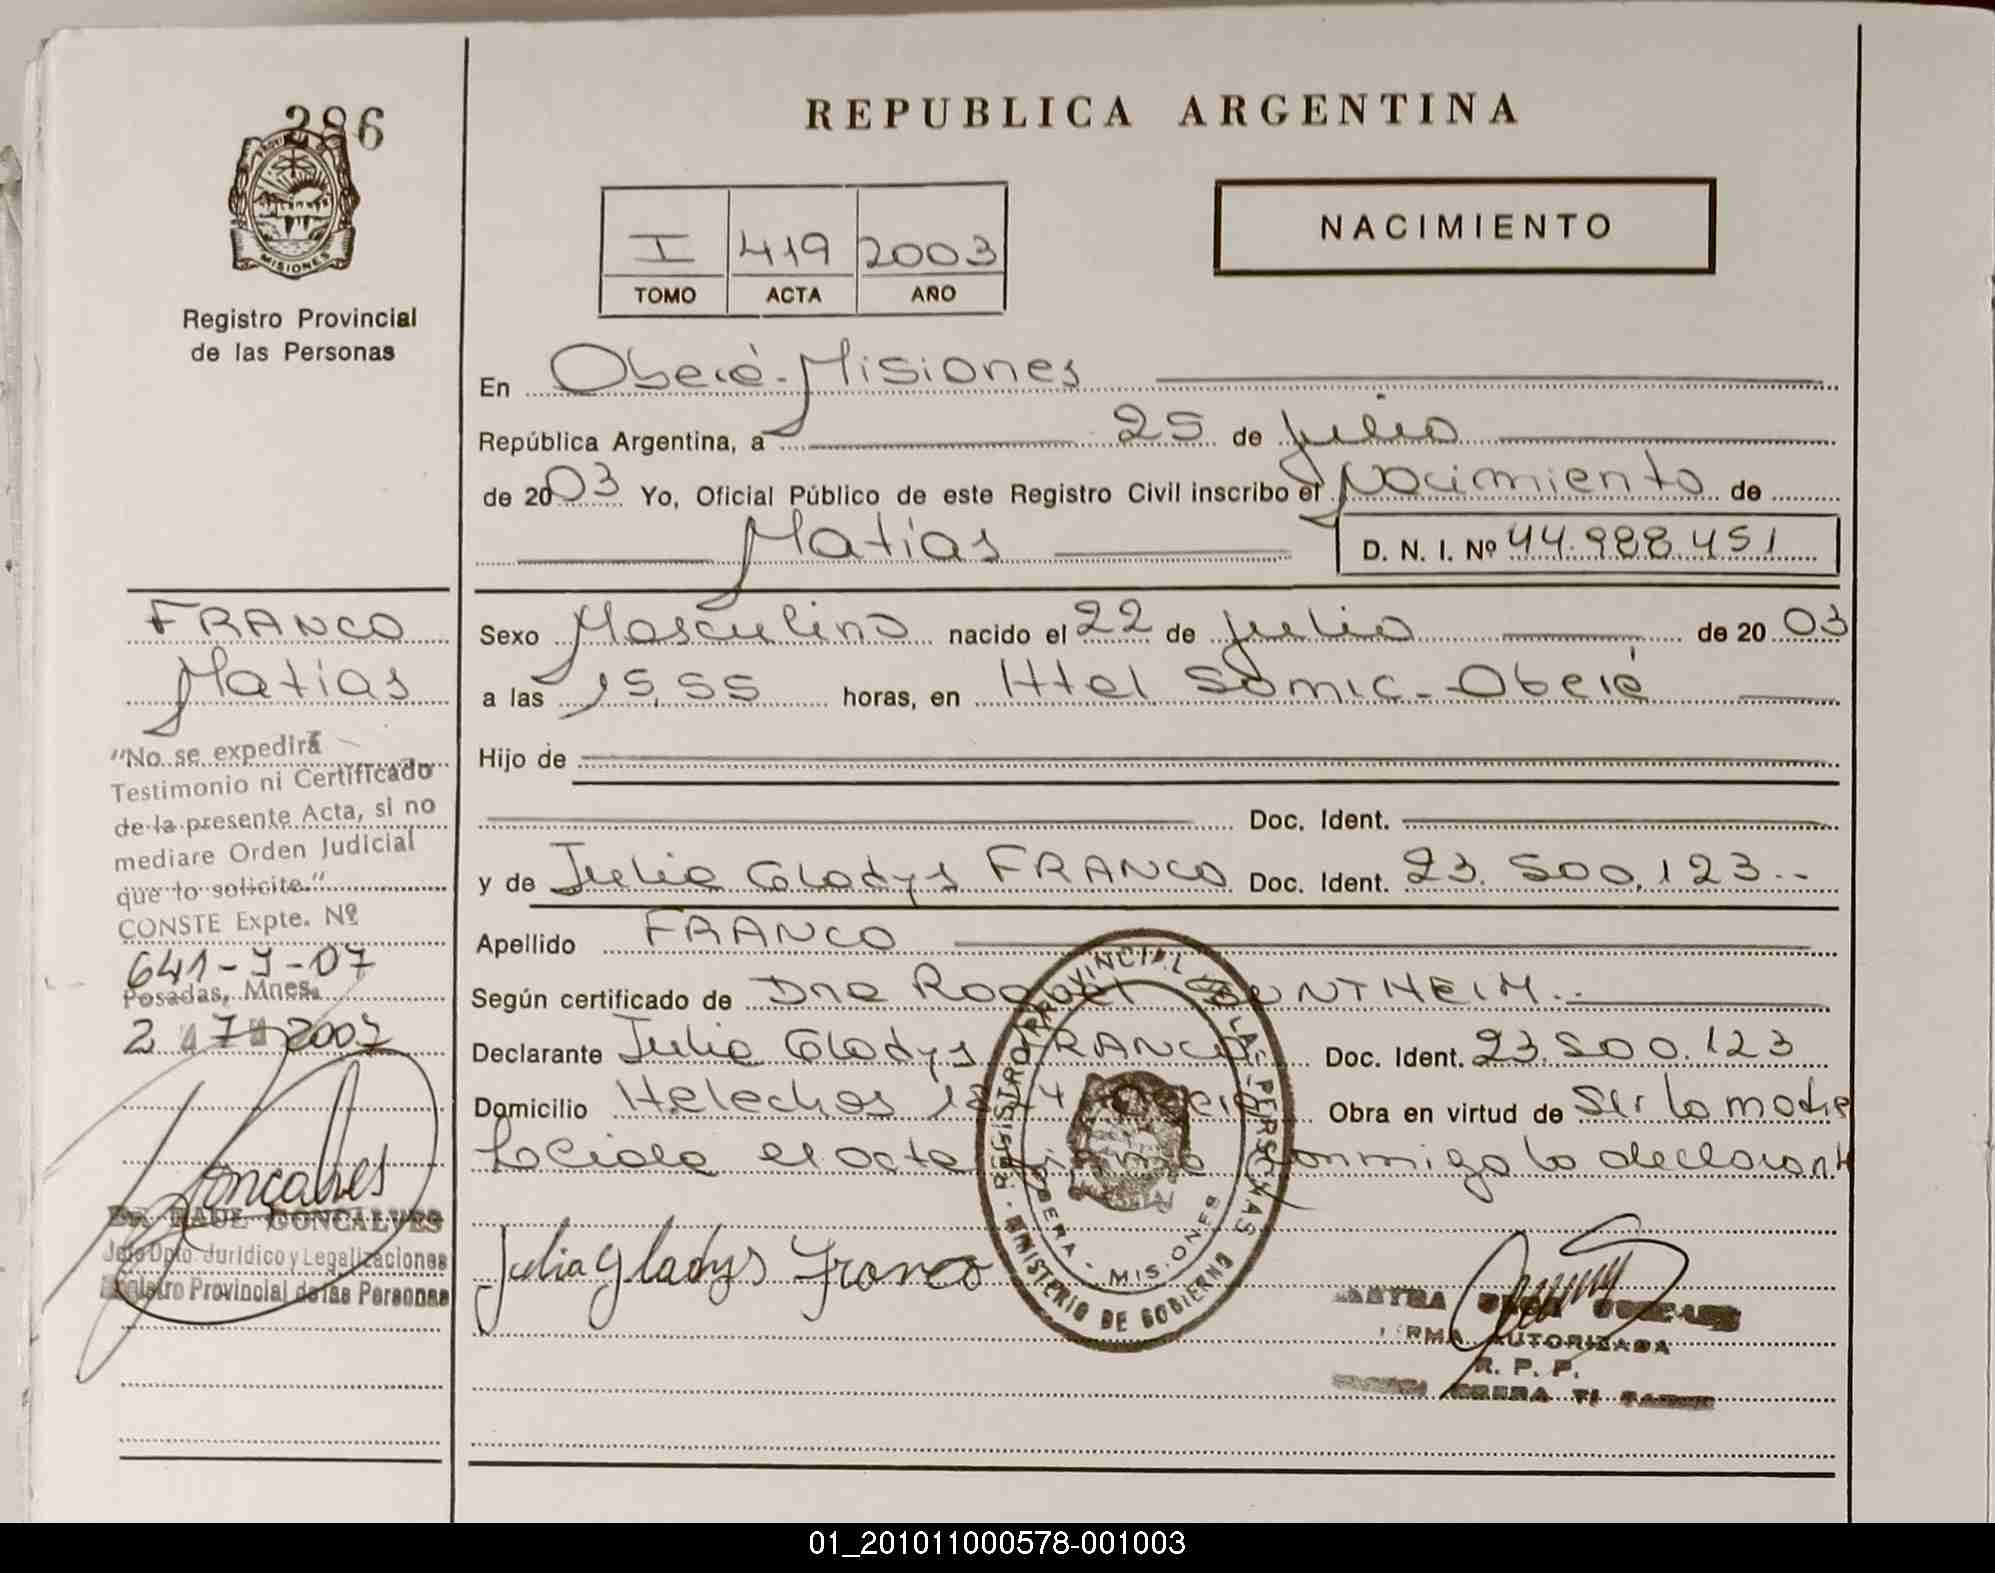 286
PROVINCIA
MISIONES
Registro Provincial
de las Personas
REPUBLICA ARGENTINA
I 419 2003
TOMO ACTA AÑO
NACIMIENTO
En Oberá-Misiones
República Argentina, a 25 de julio
de 2003 Yo, Oficial Público de este Registro Civil inscribo el Nacimiento de
Matías
D. N. I. Nº 44.988.451
Sexo Masculino nacido el 22 de julio de 2003
a las 15,55 horas, en Htel Samic-Oberá
Hijo de
Doc. Ident.
y de Julia Gladys FRANCO Doc. Ident. 23.500.123--
Apellido FRANCO
Según certificado de Dra Raquel
Declarante Julia Gladys FRANCO Doc. Ident. 23.500.123
Domicilio Helechos Oberá Obra en virtud de Ser la madre
Leida el acta firma conmigo la declarante
Julia Gladys Franco
REGISTRO PROVINCIAL DE LAS PERSONAS
MINISTERIO DE GOBIERNO
OBERA - MISIONES
FIRMA AUTORIZADA
R. P. P.
FRANCO
Matías
"No se expedirá
Testimonio ni Certificado
de la presente Acta, si no
mediare Orden Judicial
que lo solicite."
CONSTE Expte. Nº
641-J-07
Posadas, Mnes.
2 7 2007
Goncalves
DR. RAUL GONCALVES
Jefe Dpto. Jurídico y Legalizaciones
Registro Provincial de las Personas
01_201011000578-001003